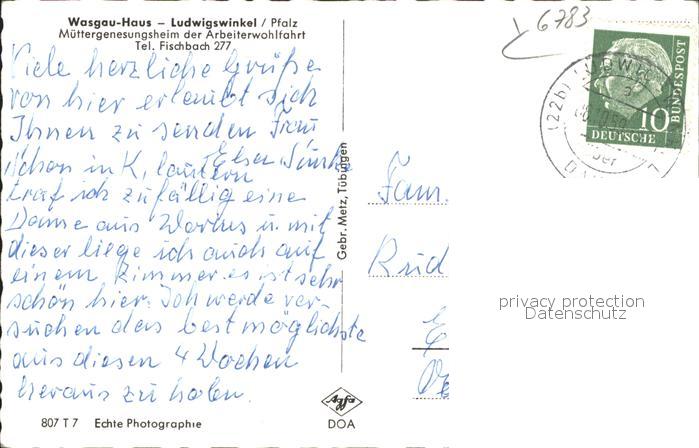 Wasgau-Haus – Ludwigswinkel / Pfalz
Müttergenesungsheim der Arbeiterwohlfahrt
Tel. Fischbach 277
6783
Viele herzliche Grüße
von hier erlaubt sich
Ihnen zu senden Frau
Elsa
Schon in K, lautern
traf ich zufällig eine
Dame aus Worms u. mit
dieser liege ich auch auf
einem Zimmer. es ist sehr
schön hier. Ich werde ver-
suchen das best möglichste
aus diesen 4 Wochen
heraus zu holen.
Gebr. Metz, Tübingen
Fam.
Rud
10
DEUTSCHE
BUNDESPOST
(22b) LUDWI
privacy protection
Datenschutz
807 T 7 Echte Photographie
Agfa
DOA